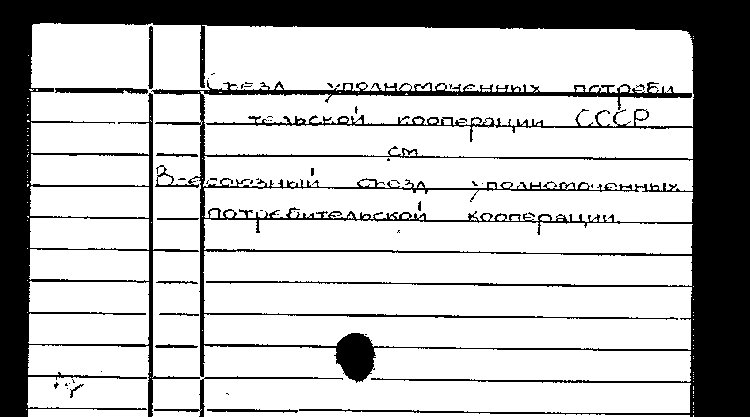 Съезд уполномоченных потреби
тельской кооперации СССР
см.
Всесоюзный съезд уполномоченных
потребительской кооперации.